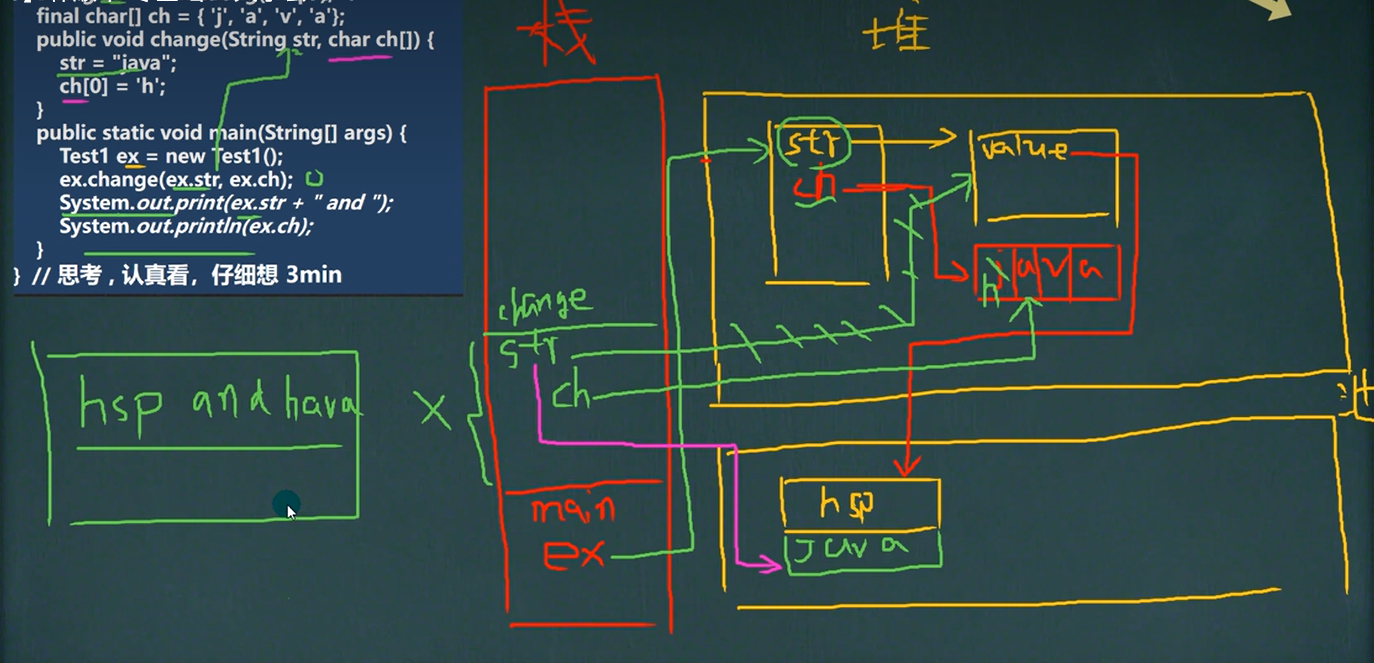 final char[] ch = { 'j', 'a', 'v', 'a'};
public void change(String str, char ch[]) {
str = "java";
ch[0] = 'h';
}
public static void main(String[] args) {
Test1 ex = new Test1();
ex.change(ex.str, ex.ch);
System.out.print(ex.str + " and ");
System.out.println(ex.ch);
}
} // 思考,认真看,仔细想 3min
栈
堆
str
ch
value
h a v a
change
str
ch
hsp and hava
main
ex
hsp
java